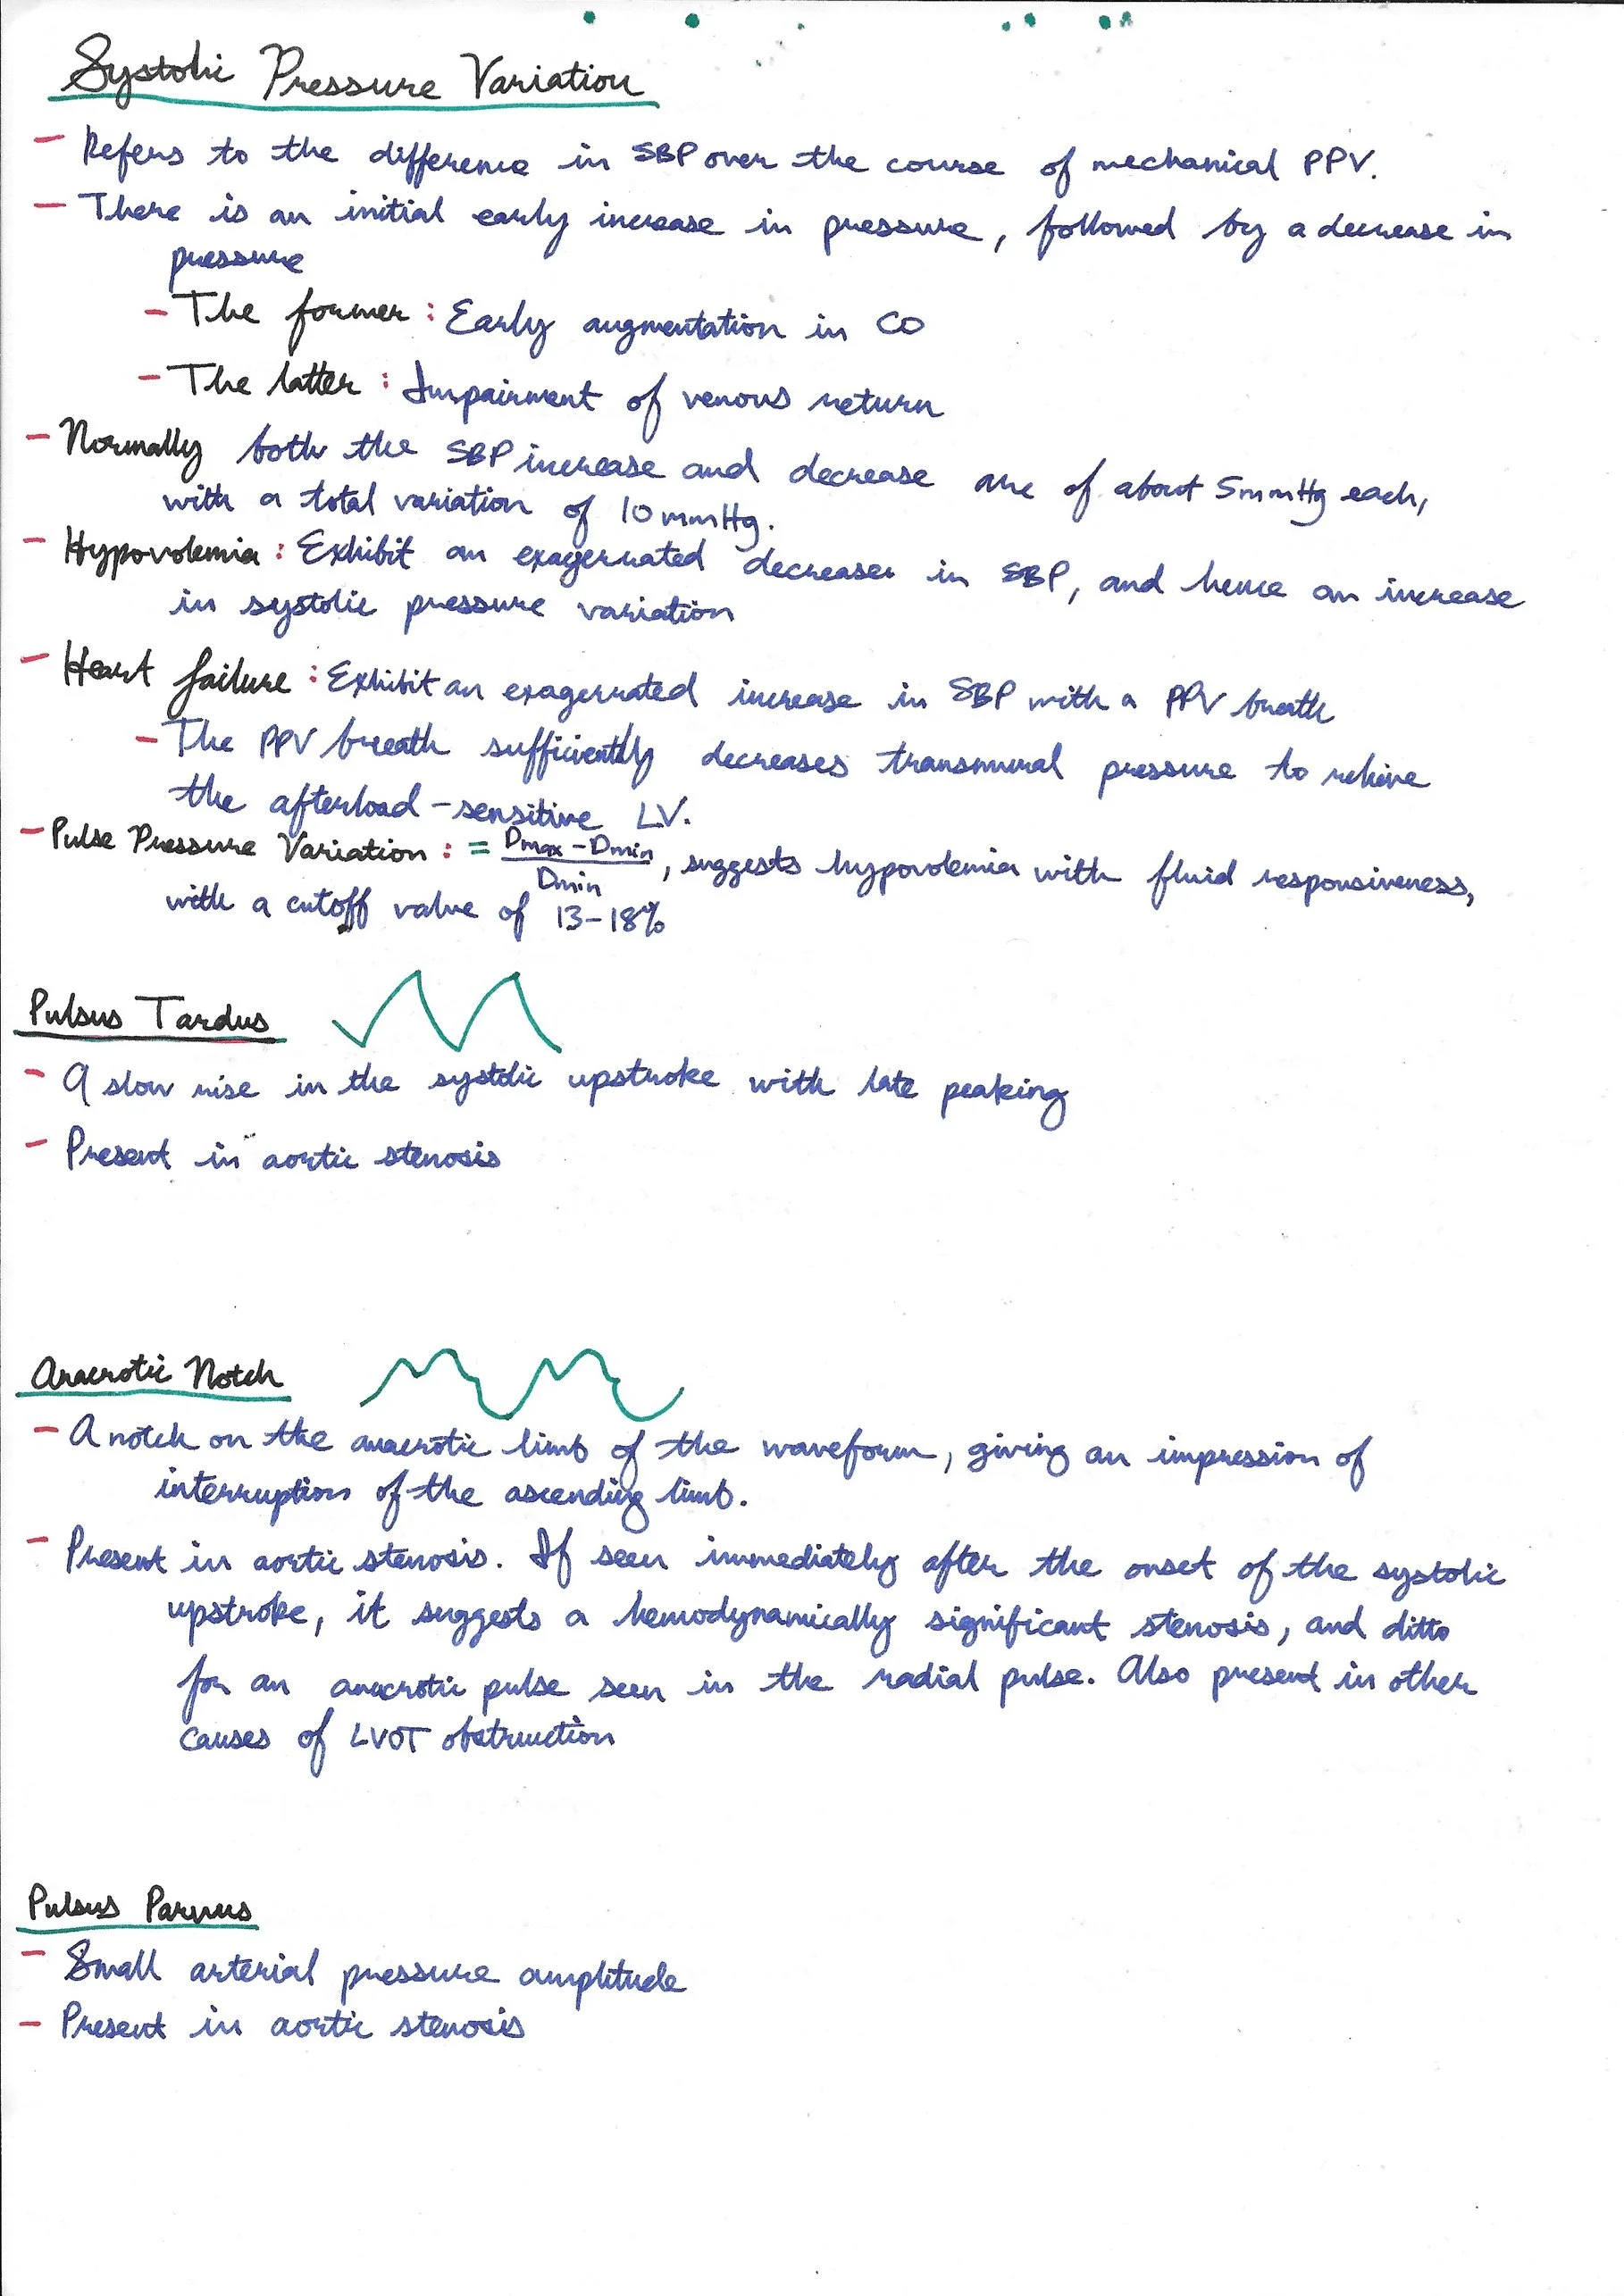 Systolic Pressure Variation
- Refers to the difference in SBP over the course of mechanical PPV.
- There is an initial early increase in pressure, followed by a decrease in
pressure
- The former : Early augmentation in CO
- The latter : Impairment of venous return
- Normally both the SBP increase and decrease are of about 5mmHg each,
with a total variation of 10mmHg.
- Hypovolemia : Exhibit an exagerrated decreases in SBP, and hence an increase
in systolic pressure variation
- Heart failure : Exhibit an exagerrated increase in SBP with a PPV breath
- The PPV breath sufficiently decreases transmural pressure to relieve
the afterload-sensitive LV.
- Pulse Pressure Variation : = Dmax - Dmin / Dmin , suggests hypovolemia with fluid responsiveness,
with a cutoff value of 13-18%
Pulsus Tardus
- A slow rise in the systolic upstroke with late peaking
- Present in aortic stenosis
Anacrotic Notch
- A notch on the anacrotic limb of the waveform, giving an impression of
interruption of the ascending limb.
- Present in aortic stenosis. If seen immediately after the onset of the systolic
upstroke, it suggests a hemodynamically significant stenosis, and ditto
for an anacrotic pulse seen in the radial pulse. Also present in other
causes of LVOT obstruction
Pulsus Parvus
- Small arterial pressure amplitude
- Present in aortic stenosis